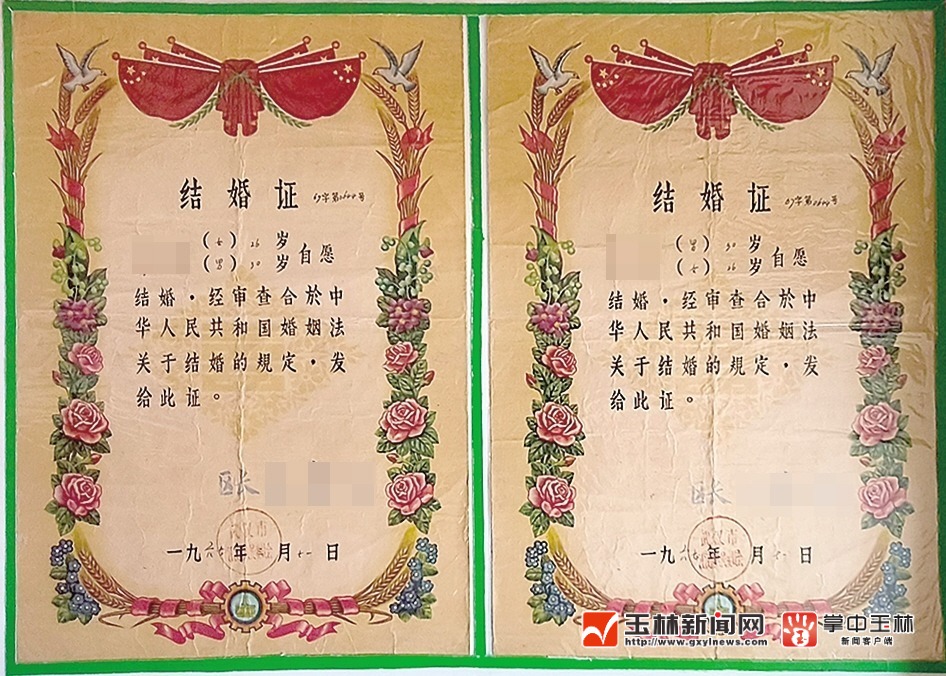 结婚证
(女) 26 岁
(男) 30 岁 自愿
结婚，经审查合於中
华人民共和国婚姻法
关于结婚的規定，发
给此证。
区长
武汉市
一九六 年 月十一日
结婚证
(男) 30 岁
(女) 26 岁 自愿
结婚，经审查合於中
华人民共和国婚姻法
关于结婚的規定，发
给此证。
区长
武汉市
一九六 年 月十一日
玉林新闻网
http://www.gxylnews.com
掌中玉林
新闻客户端